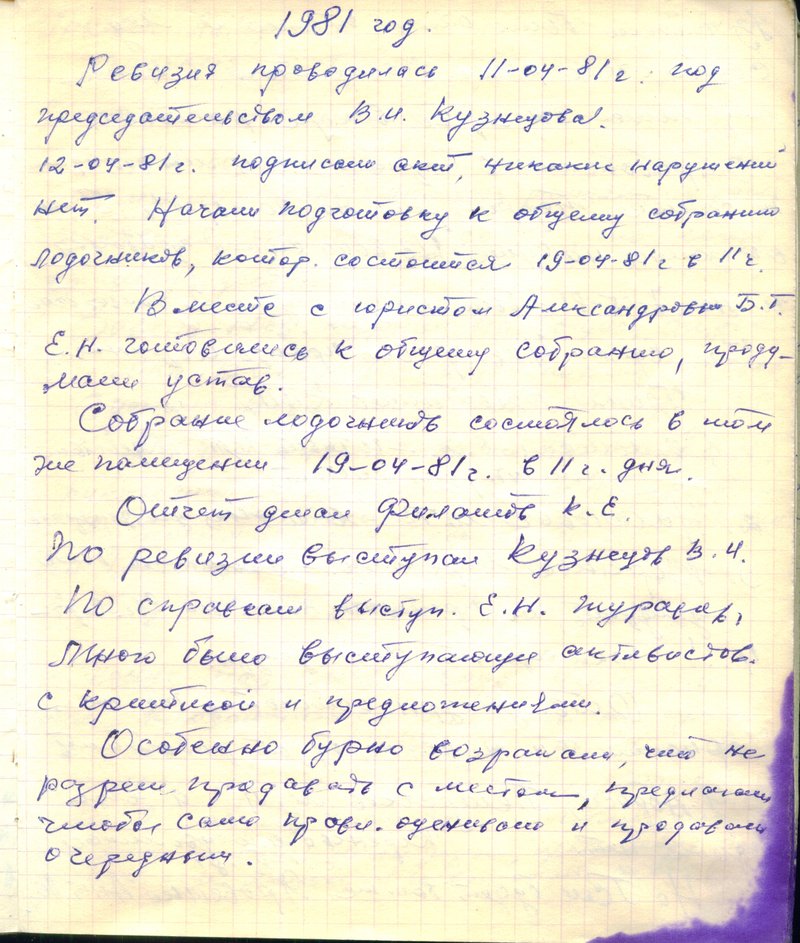 1981 год.
Ревизия проводилась 11-04-81г. под
председательством В.И. Кузнецова.
12-04-81г. подписали акт, никаких нарушений
нет. Начали подготовку к общему собранию
лодочников, котор. состоится 19-04-81г в 11ч.
Вместе с юристом Александровым Б.Г.
Е.Н. готовились к общему собранию, проду-
мали устав.
Собрание лодочников состоялось в том
же помещении 19-04-81г. в 11 г. дня.
Отчет делал Филатов К.Е.
По ревизии выступал Кузнецов В.И.
По справкам выступ. Е.Н. Журавлев,
Много было выступающих активистов.
с критикой и предложениями.
Особенно бурно возражали, что не
разреш. продавать с местом, предлагали
чтобы само правл. оценивало и продавали
очередным.